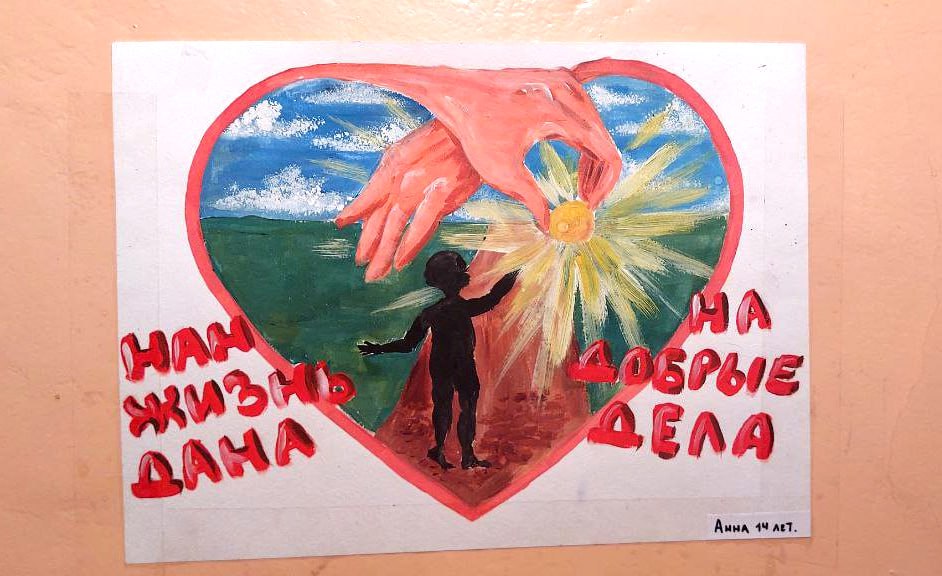 НАН
ЖИЗНЬ
ДАНА
НА
ДОБРЫЕ
ДЕЛА
Анна 14 лет.